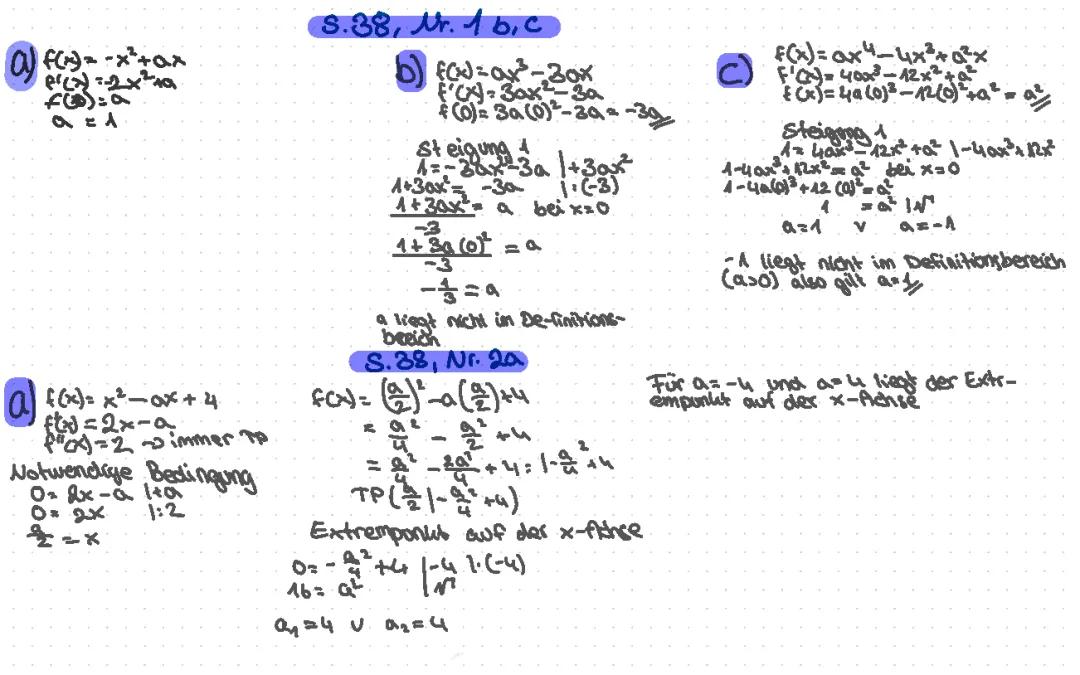 S.38, Nr. 1 b, c
a) f(x) = -x² + ax
f'(x) = -2x² + a
f(0) = a
a = 1
b) f(x) = ax³ - 3ax
f'(x) = 3ax² - 3a
f(0) = 3a(0)² - 3a = -3a
Steigung 1
1 = -3ax² - 3a | +3ax²
1 + 3ax² = -3a | :(-3)
(1 + 3ax²)/-3 = a bei x=0
(1 + 3a(0)²)/-3 = a
-1/3 = a
a liegt nicht in Definitions-
bereich
c) f(x) = ax⁴ - 4x³ + a²x
f'(x) = 4ax³ - 12x² + a²
f(x) = 4a(0)³ - 12(0)² + a² = a²
Steigong 1
1 = 4ax³ - 12x² + a² | -4ax³ + 12x²
1 - 4ax³ + 12x² = a² bei x=0
1 - 4a(0)³ + 12(0)² = a²
1 = a² | √
a = 1 v a = -1
-1 liegt nicht im Definitionsbereich
(a>0) also gilt a=1
S.38, Nr. 2a
a) f(x) = x² - ax + 4
f'(x) = 2x - a
f''(x) = 2 → immer TP
Notwendige Bedingung
0 = 2x - a | +a
0 = 2x | :2
a/2 = x
f(x) = (a/2)² - a(a/2) + 4
= a²/4 - a²/2 + 4
= a²/4 - 2a²/4 + 4 = |-a²/4 + 4
TP (a/2 | -a²/4 + 4)
Extrempunkt auf der x-Achse
0 = -a²/4 + 4 | -4 | ·(-4)
16 = a² | √
a₁ = 4 v a₂ = 4
Für a = -4 und a = 4 liegt der Extr-
empunkt auf der x-Achse